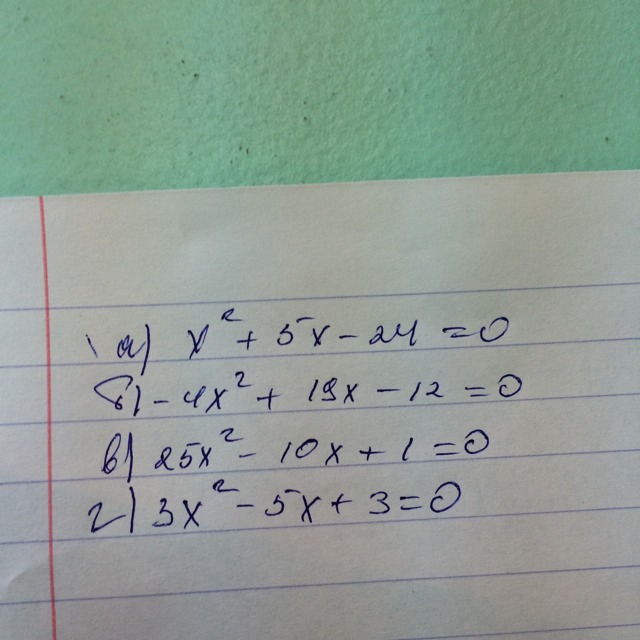 а) x² + 5x - 24 = 0
б) - 4x² + 19x - 12 = 0
в) 25x² - 10x + 1 = 0
г) 3x² - 5x + 3 = 0